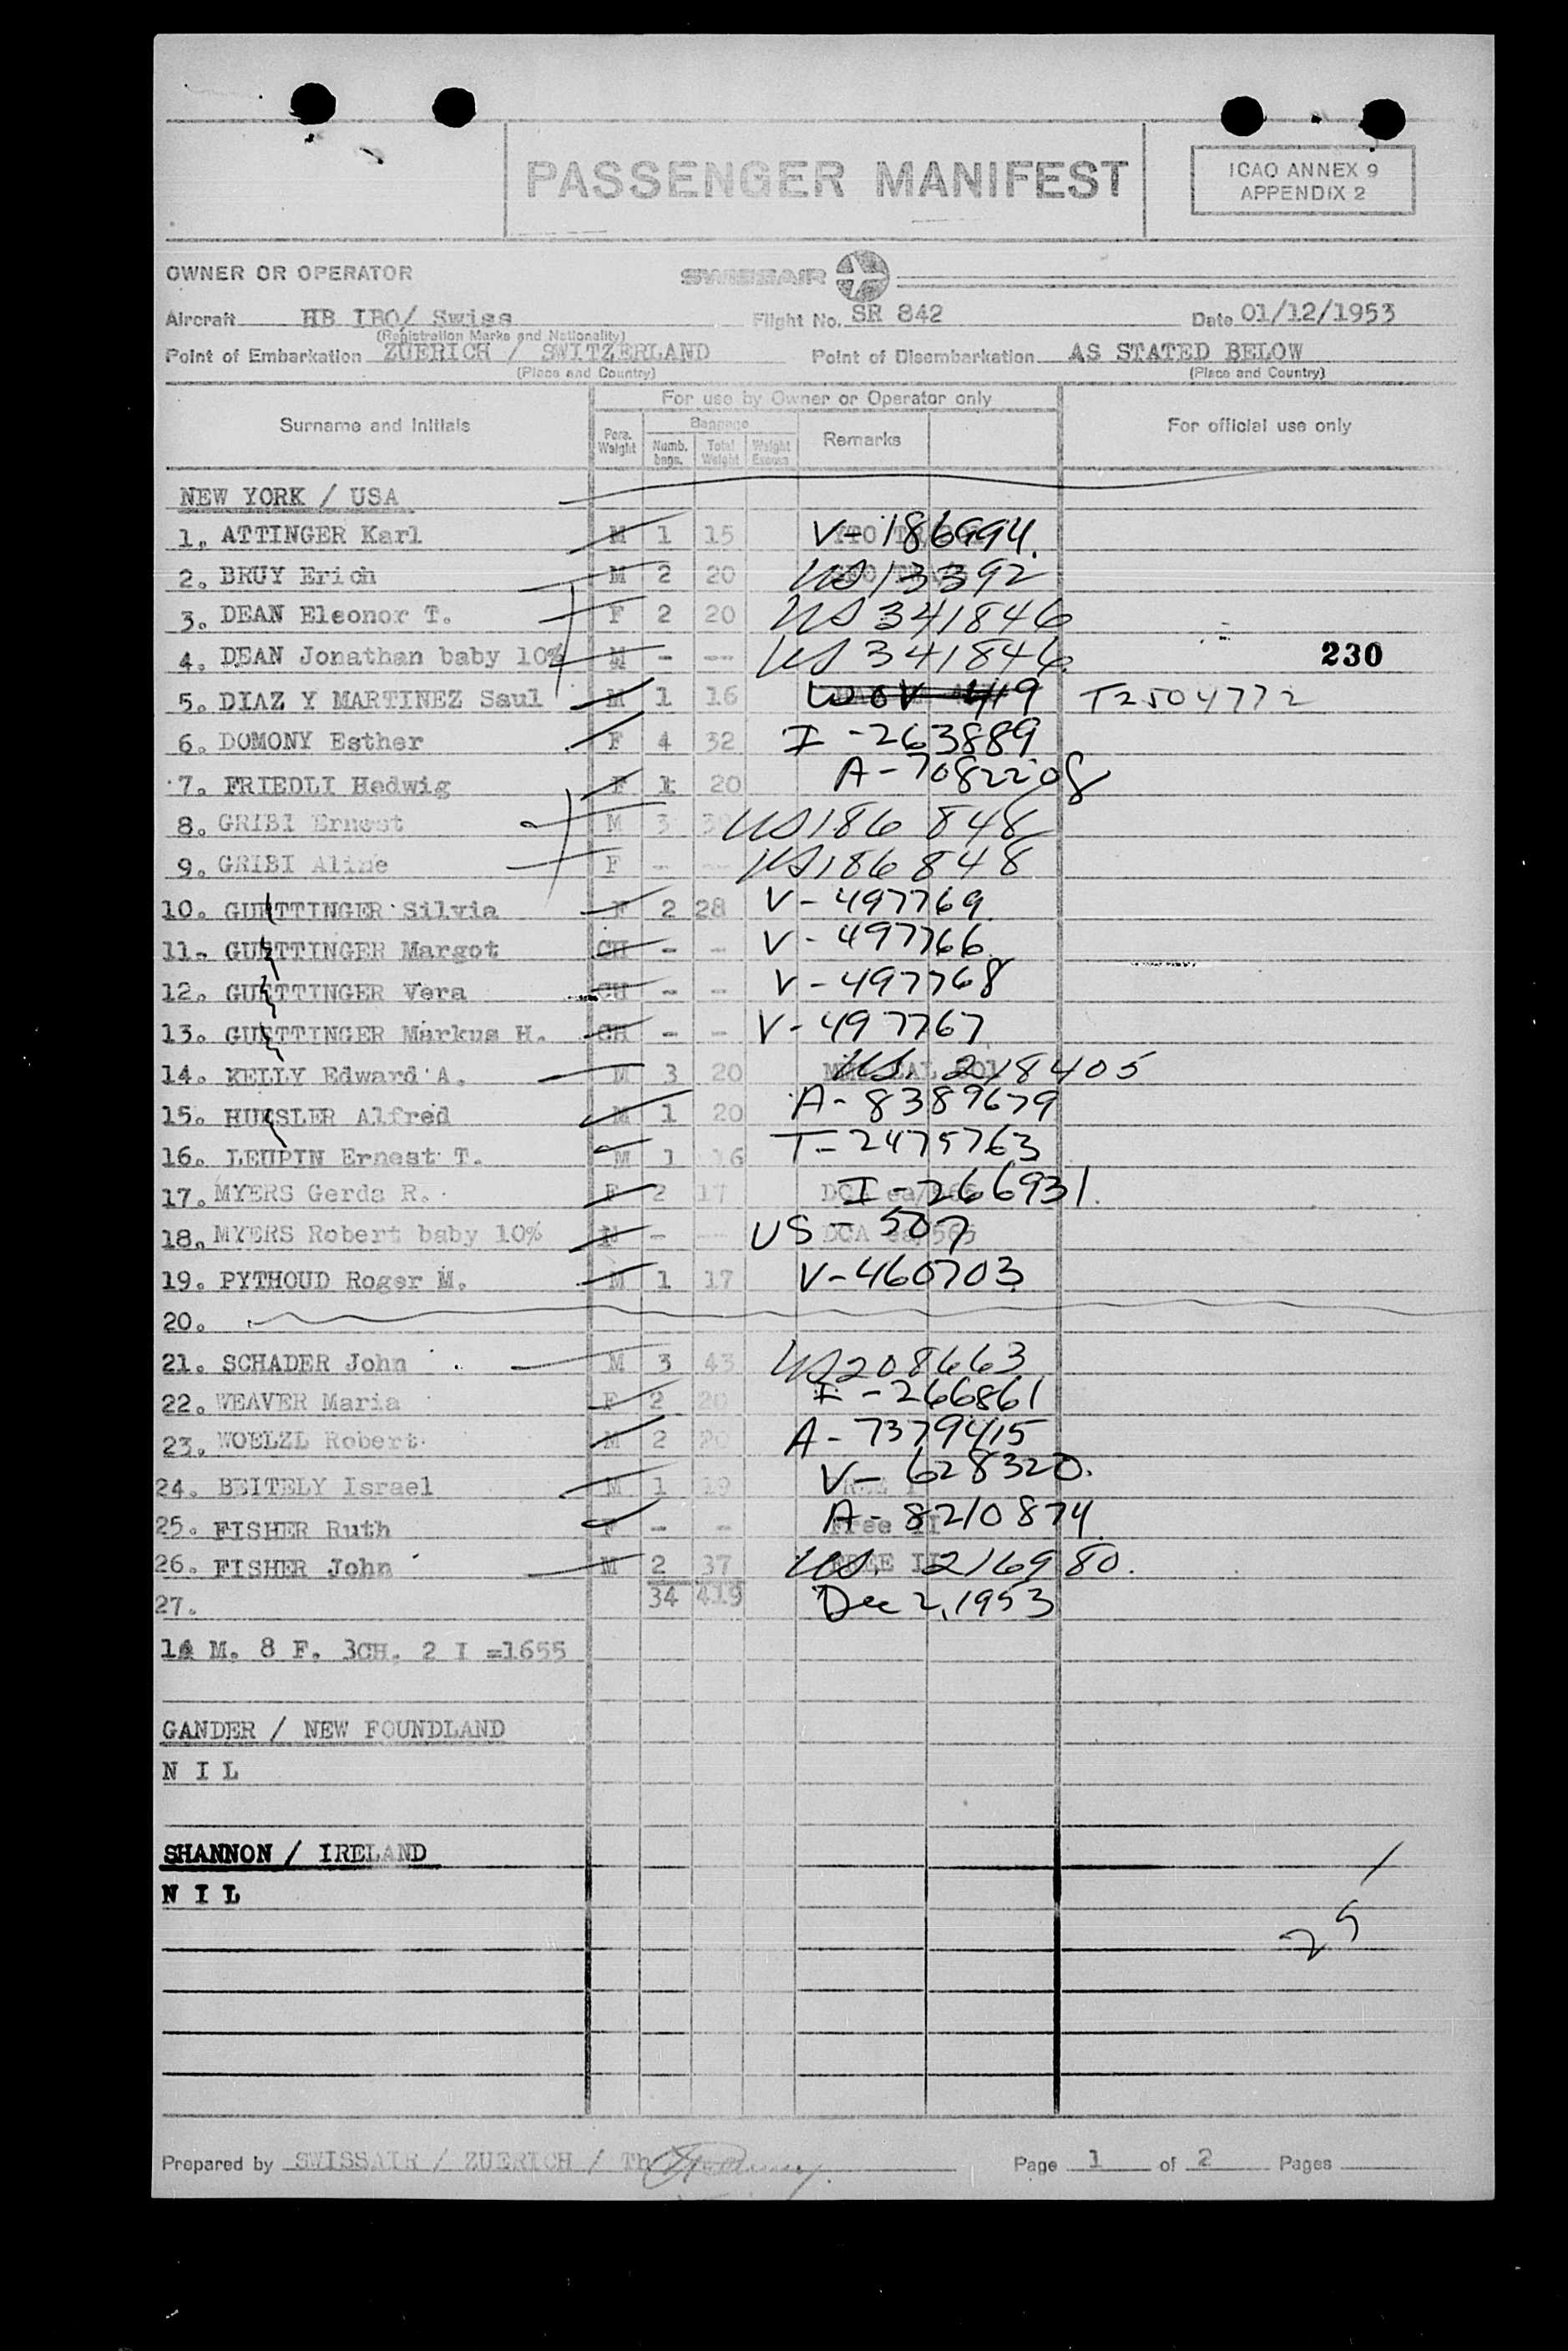 PASSENGER MANIFEST
ICAO ANNEX 9
APPENDIX 2
OWNER OR OPERATOR SWISSAIR
Aircraft HB IBO/ Swiss Flight No. SR 842 Date 01/12/1953
(Registration Marks and Nationality)
Point of Embarkation ZUERICH / SWITZERLAND Point of Disembarkation AS STATED BELOW
(Place and Country) (Place and Country)
For use by Owner or Operator only
Surname and Initials Pers. Weight Baggage Numb. bags. Total Weight Weight Excess Remarks For official use only
NEW YORK / USA
1. ATTINGER Karl M 1 15 V-186994.
2. BRUY Erich M 2 20 US 13392
3. DEAN Eleonor T. F 2 20 US 341846
4. DEAN Jonathan baby 10% M - -- US 341846 230
5. DIAZ Y MARTINEZ Saul M 1 16 T2504772
6. DOMONY Esther F 4 32 I-263889
7. FRIEDLI Hedwig F 1 20 A-7082208
8. GRIBI Ernest M 3 US 186 848
9. GRIBI Aline F - -- US 186848
10. GUETTINGER Silvia F 2 28 V-497769
11. GUETTINGER Margot CH - -- V-497766
12. GUETTINGER Vera CH - -- V-497768
13. GUETTINGER Markus H. CH - -- V-497767
14. KELLY Edward A. M 3 20 US. 218405
15. HUESLER Alfred M 1 20 A-8389679
16. LEUPIN Ernest T. M 1 16 T-2475763
17. MYERS Gerda R. F 2 17 DCA ea/565 I-266931.
18. MYERS Robert baby 10% M - -- DCA ea/565 US-507
19. PYTHOUD Roger M. M 1 17 V-460703
20.
21. SCHADER John M 3 43 US 208663
22. WEAVER Maria F 2 20 I-266861
23. WOELZL Robert M 2 20 A-7379415
24. BEITELY Israel M 1 19 V-628320.
25. FISHER Ruth F - - Free II A-8210874
26. FISHER John M 2 37 FREE II US. 216980.
27. 34 419 Dec 2, 1953
14 M. 8 F. 3CH. 2 I =1655
GANDER / NEW FOUNDLAND
N I L
SHANNON / IRELAND
N I L
25
Prepared by SWISSAIR / ZUERICH / Th Page 1 of 2 Pages